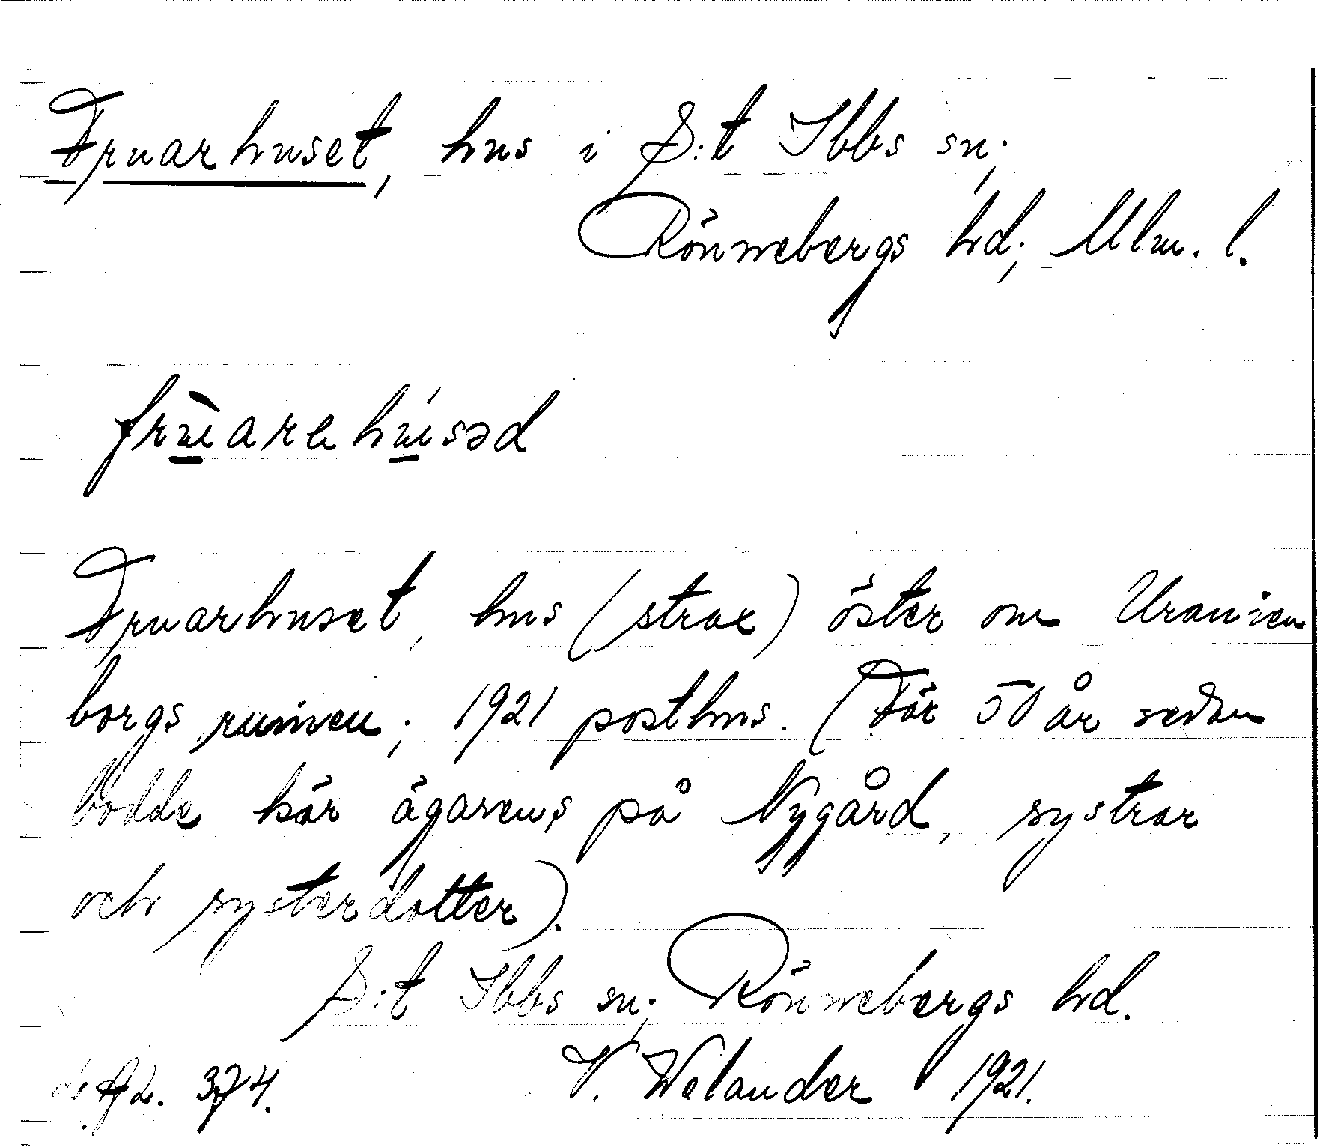 Fruarhuset, hus i S:t Ibbs sn;
Rönnebergs hd; Mlm. l.
frùarahúsəd
Fruarhuset, hus (strax) öster om Uranien
borgs ruinen; 1921 posthus. (För 50 år sedan
bodde här ägarens på Nygård, systrar
och systerdotter).
S:t Ibbs sn; Rönnebergs hd.
374. V. Welander 1921.